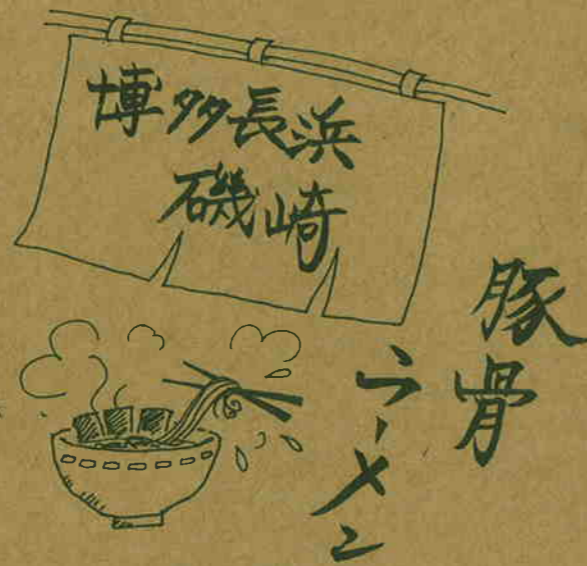 博多長浜
磯崎
豚骨
ラーメン